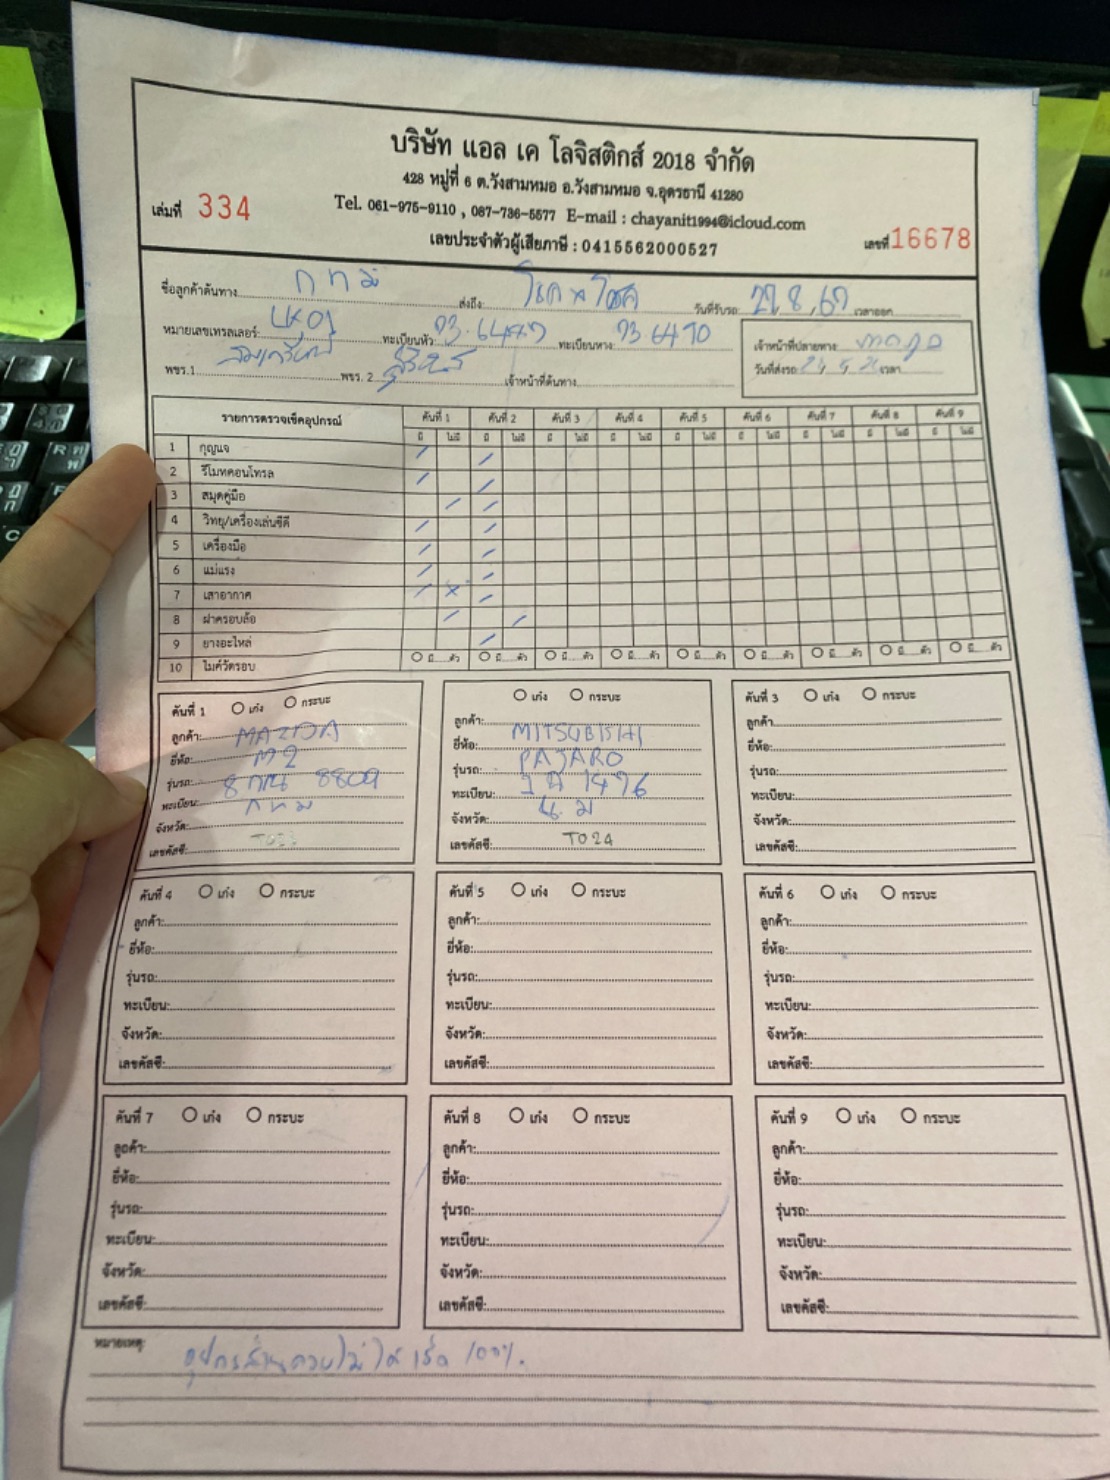 บริษัท แอล เค โลจิสติกส์ 2018 จำกัด
428 หมู่ที่ 6 ต.วังสามหมอ อ.วังสามหมอ จ.อุดรธานี 41280
เล่มที่ 334
Tel. 061-975-9110 , 087-736-5577 E-mail : chayanit1994@icloud.com
เลขประจำตัวผู้เสียภาษี : 0415562000527
เลขที่ 16678
ชื่อลูกค้าต้นทาง กทม ส่งถึง วันที่รับรถ เวลาออก
หมายเลขเทรลเลอร์: ทะเบียนหัว: ทะเบียนหาง: 73-6470
เจ้าหน้าที่ปลายทาง:
พขร.1 พขร. 2 เจ้าหน้าที่ต้นทาง
วันที่ส่งรถ เวลา
รายการตรวจเช็คอุปกรณ์ คันที่ 1 คันที่ 2 คันที่ 3 คันที่ 4 คันที่ 5 คันที่ 6 คันที่ 7 คันที่ 8 คันที่ 9
มี ไม่มี มี ไม่มี มี ไม่มี มี ไม่มี มี ไม่มี มี ไม่มี มี ไม่มี มี ไม่มี มี ไม่มี
1 กุญแจ
2 รีโมทคอนโทรล
3 สมุดคู่มือ
4 วิทยุ/เครื่องเล่นซีดี
5 เครื่องมือ
6 แม่แรง
7 เสาอากาศ
8 ฝาครอบล้อ
9 ยางอะไหล่
10 ไมค์วัดรอบ มี ตัว มี ตัว มี ตัว มี ตัว มี ตัว มี ตัว มี ตัว มี ตัว มี ตัว
คันที่ 1 เก๋ง กระบะ
ลูกค้า: MAZDA
ยี่ห้อ: M2
รุ่นรถ: 8809
ทะเบียน: กทม
จังหวัด:
เลขคัสซี:
เก๋ง กระบะ
ลูกค้า: MITSUBISHI
ยี่ห้อ: PAJARO
รุ่นรถ: 1496
ทะเบียน: น.ม
จังหวัด:
เลขคัสซี: T024
คันที่ 3 เก๋ง กระบะ
ลูกค้า:
ยี่ห้อ:
รุ่นรถ:
ทะเบียน:
จังหวัด:
เลขคัสซี:
คันที่ 4 เก๋ง กระบะ
ลูกค้า:
ยี่ห้อ:
รุ่นรถ:
ทะเบียน:
จังหวัด:
เลขคัสซี:
คันที่ 5 เก๋ง กระบะ
ลูกค้า:
ยี่ห้อ:
รุ่นรถ:
ทะเบียน:
จังหวัด:
เลขคัสซี:
คันที่ 6 เก๋ง กระบะ
ลูกค้า:
ยี่ห้อ:
รุ่นรถ:
ทะเบียน:
จังหวัด:
เลขคัสซี:
คันที่ 7 เก๋ง กระบะ
ลูกค้า:
ยี่ห้อ:
รุ่นรถ:
ทะเบียน:
จังหวัด:
เลขคัสซี:
คันที่ 8 เก๋ง กระบะ
ลูกค้า:
ยี่ห้อ:
รุ่นรถ:
ทะเบียน:
จังหวัด:
เลขคัสซี:
คันที่ 9 เก๋ง กระบะ
ลูกค้า:
ยี่ห้อ:
รุ่นรถ:
ทะเบียน:
จังหวัด:
เลขคัสซี:
หมายเหตุ: ไม่ได้เช็ค 100%